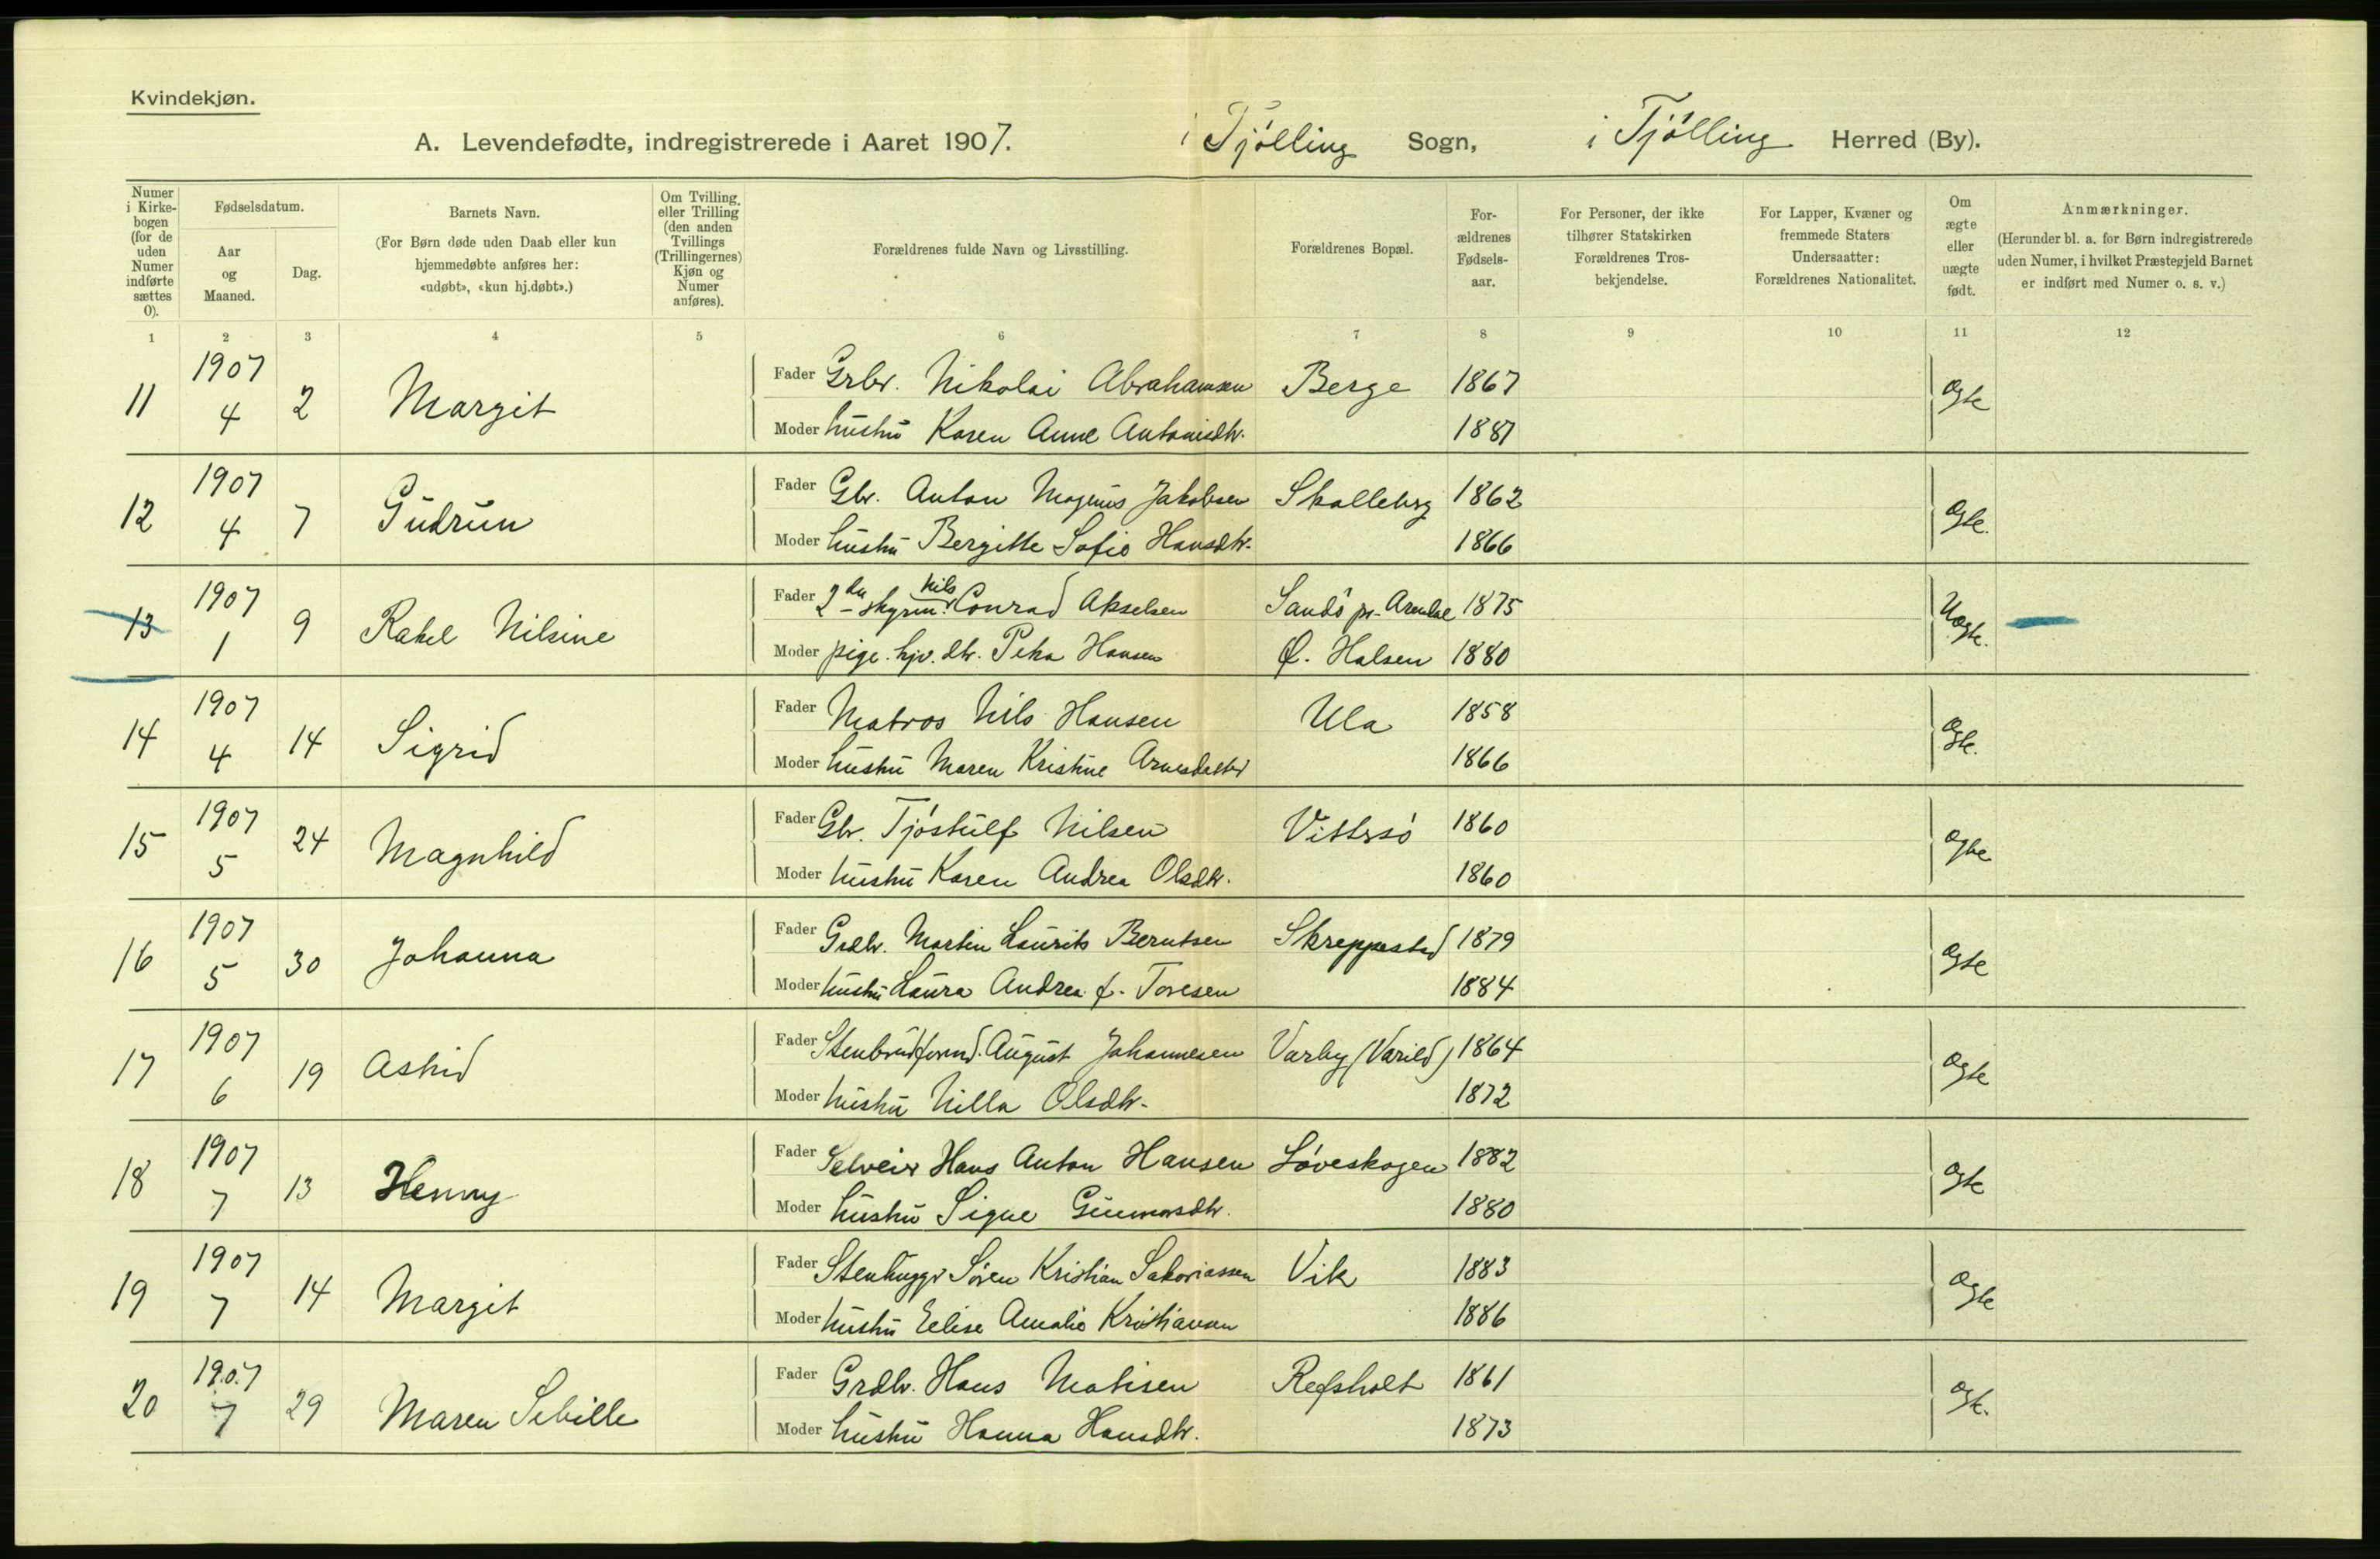 Kvindekjøn.
A. Levendefødte, indregistrerede i Aaret 1907. i Tjølling Sogn, i Tjølling Herred (By).
Numer i Kirkebogen (for de uden Numer indførte sættes 0).
Fødselsdatum.
Aar og Maaned.
Dag.
Barnets Navn.
(For Børn døde uden Daab eller kun hjemmedøbte anføres her: «udøbt», «kun hj.døbt».)
Om Tvilling eller Trilling (den anden Tvillings (Trillingernes) Kjøn og Numer anføres).
Forældrenes fulde Navn og Livsstilling.
Forældrenes Bopæl.
Forældrenes Fødselsaar.
For Personer, der ikke tilhører Statskirken Forældrenes Trosbekjendelse.
For Lapper, Kvæner og fremmede Staters Undersaatter: Forældrenes Nationalitet.
Om ægte eller uægte født.
Anmærkninger.
(Herunder bl. a. for Børn indregistrerede uden Numer, i hvilket Præstegjeld Barnet er indført med Numer o. s. v.)
1 2 3 4 5 6 7 8 9 10 11 12
11 1907 4 2 Margit Fader Grbr. Nikolai Abrahamsen Berge 1867 Ægte
Moder hustru Karen Anne Antonisdtr. 1887
12 1907 4 7 Gudrun Fader Gbr. Anton Magnus Jakobsen Skalleberg 1862 Ægte.
Moder hustru Bergitte Sofie Hansdtr. 1866
13 1907 1 9 Rakel Nilsine Fader 2den styrm. Nils Conrad Akselsen Sandö pr. Arendal 1875 Uægte.
Moder pige. hjv. dtr. Petra Hansen Ø. Halsen 1880
14 1907 4 14 Sigrid Fader Matros Nils Hansen Ula 1858 Ægte.
Moder hustru Maren Kristine Arnesdatter 1866
15 1907 5 24 Magnhild Fader Gbr. Tjöstulf Nilsen Vittersö 1860 Ægte
Moder hustru Karen Andrea Olsdtr. 1860
16 1907 5 30 Johanna Fader Grdbr. Martin Laurits Berntsen Skreppestad 1879 Ægte
Moder hustru Laura Andrea f. Toresen 1884
17 1907 6 19 Astrid Fader Stenbrudform. August Johannesen Varby (Varild) 1864 Ægte
Moder hustru Nilla Olsdtr. 1872
18 1907 7 13 Henny Fader Selveier Hans Anton Hansen Löveskogen 1882 Ægte
Moder hustru Signe Gunnarsdtr. 1880
19 1907 7 14 Margit Fader Stenhugger Sören Kristian Sakariassen Vik 1883 Ægte
Moder hustru Elise Amalie Kristiansen 1886
20 1907 7 29 Maren Sibille Fader Grdbr. Hans Matisen Refsholt 1861 Ægte.
Moder hustru Hanna Hansdtr. 1873